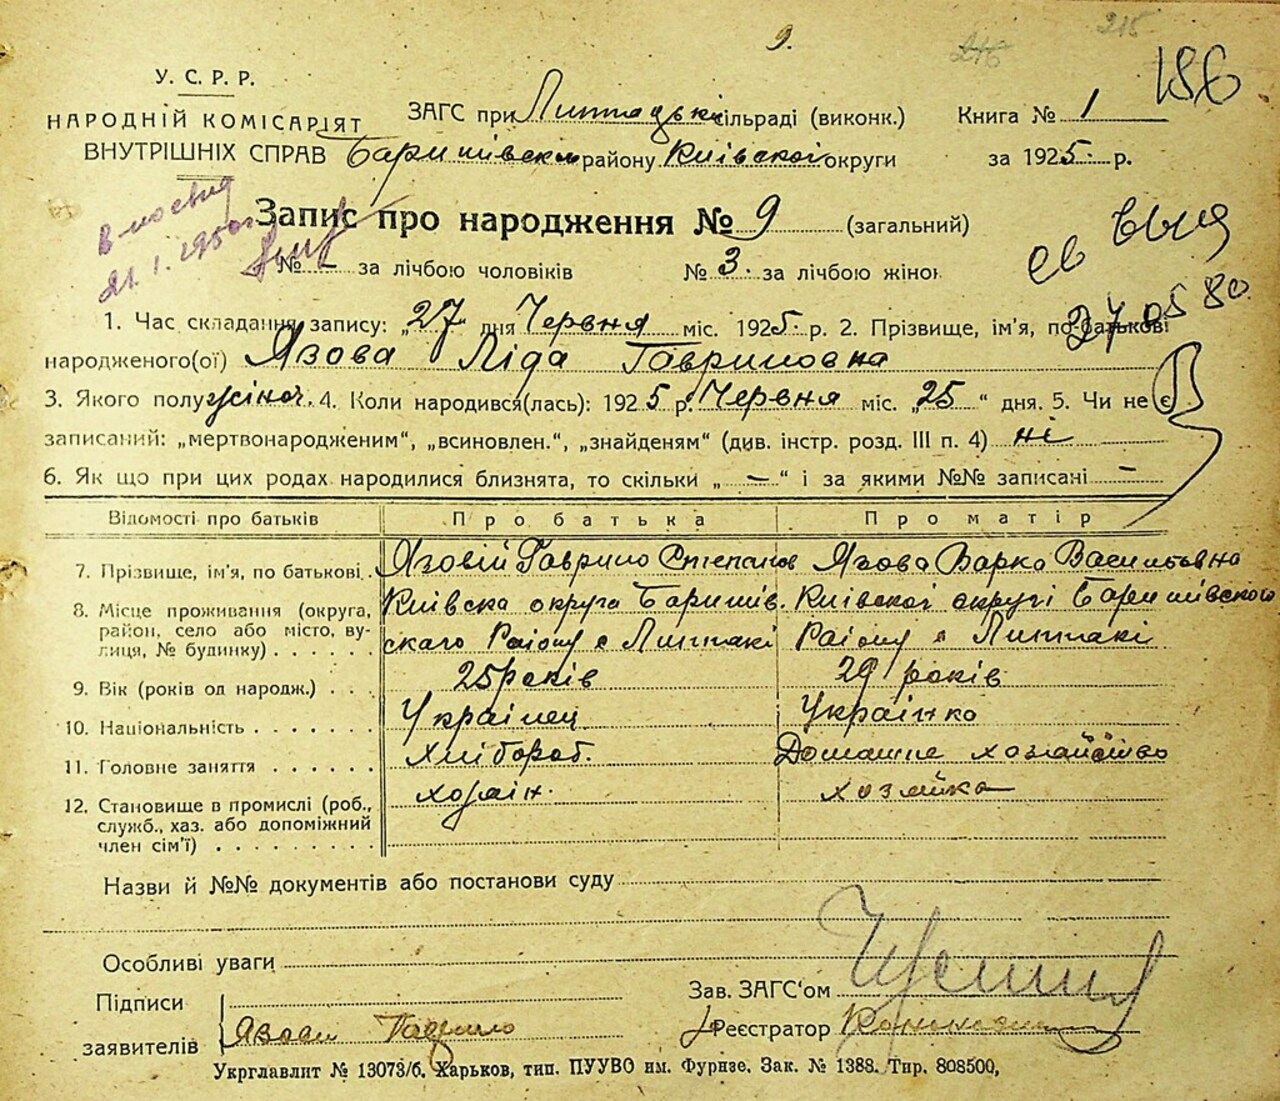 9.
216
215
186
У. С. Р. Р.
НАРОДНІЙ КОМІСАРІЯТ
ВНУТРІШНІХ СПРАВ
ЗАГС при сільраді (виконк.)
Книга № 1
району Київскої округи
за 1925. р.
Запис про народження № 9 (загальний)
21. 1. 1950
№ – за лічбою чоловіків
№ 3. за лічбою жінок
св выд
27 05 80
1. Час складання запису: „27" дня Червня міс. 1925. р. 2. Прізвище, ім'я, по-батькові
народженого(ої) Язова Ліда Гавриловна
3. Якого полу жіноч. 4. Коли народився(лась): 1925 р. Червня міс. „25" дня. 5. Чи не є
записаний: „мертвонародженим", „всиновлен.", „знайденям" (див. інстр. розд. III п. 4) ні
6. Як що при цих родах народилися близнята, то скільки „–" і за якими №№ записані –
Відомості про батьків | Про батька | Про матір
7. Прізвище, ім'я, по батькові. Язовій Гаврило Степанов Язова Варка Васильовна
8. Місце проживання (округа, Київска округа Баришів. Київскої округі Баришівского
район, село або місто, ву- скаго Раіону с Липтакі Раіону с Липтакі
лиця, № будинку)
9. Вік (років од народж.) 25 років 29 років
10. Національність Українец Українко
11. Головне заняття Хлібороб. Домашне хозяйство
12. Становище в промислі (роб., хозаін. хозяйка
служб., хаз. або допоміжний
член сім'ї)
Назви й №№ документів або постанови суду
Особливі уваги
Підписи
заявителів Гаврило
Зав. ЗАГС'ом
Реєстратор
Укрглавліт № 13073/б. Харьков, тип. ПУУВО им. Фрунзе. Зак. № 1388. Тир. 808500,